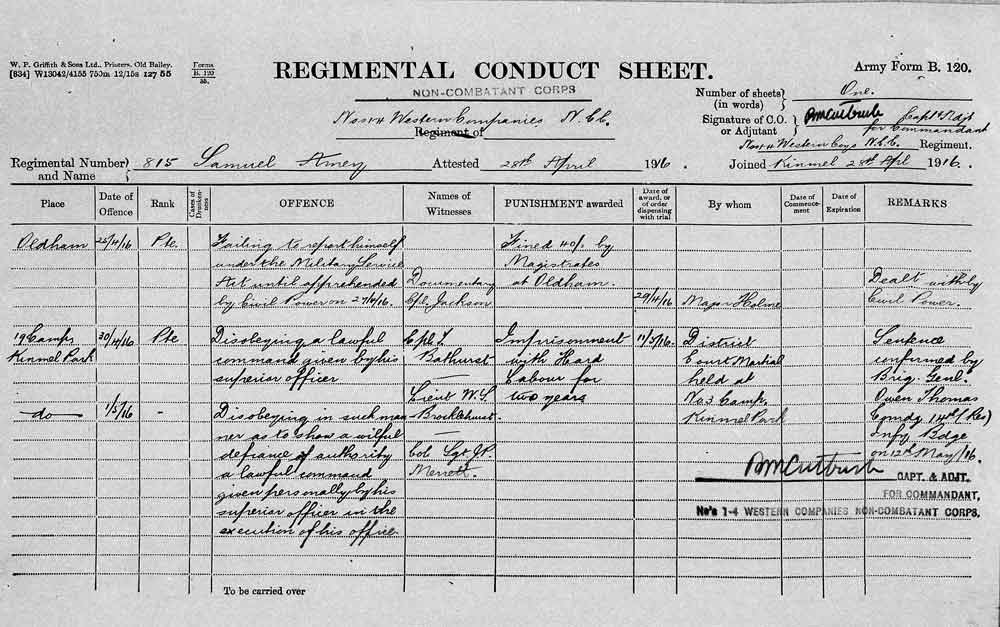 W. P. Griffith & Sons Ltd., Printers, Old Bailey.
[834] W13042/4155 750m 12/15s 127 55
Forms
B. 120
35.
REGIMENTAL CONDUCT SHEET.
Army Form B. 120.
NON-COMBATANT CORPS
Number of sheets (in words) } One.
Nos 1-4 Western Companies N.C.C.
Regiment of
Signature of C.O. or Adjutant } Capt & Adjt
for Commandant
Nos 1-4 Western Coys N.C.C. Regiment.
Regimental Number and Name } 815 Samuel Amey Attested 28th April 1916. Joined Kinmel 28th Apl 1916.
Place
Date of Offence
Rank
Cases of Drunkenness
OFFENCE
Names of Witnesses
PUNISHMENT awarded
Date of award, or of order dispensing with trial
By whom
Date of Commencement
Date of Expiration
REMARKS
Oldham 25/4/16 Pte. Failing to report himself Fined 40/- by
under the Military Service Magistrates
Act until apprehended Documentary at Oldham. Dealt with by
by Civil Power on 27/4/16. Cpl. Jackson 29/4/16 Major Holme Civil Power.
19 Camp, 30/4/16 Pte Disobeying a lawful Cpl. T. Imprisonment 11/5/16. District Sentence
Kinmel Park command given by his Bathurst with Hard Court Martial confirmed by
superior officer Labour for held at Brig. Genl.
Lieut W.S. two years No 3 Camp. Owen Thomas
do 1/5/16 - Disobeying in such man- Brocklehurst Kinmel Park Comdg 14th (Res)
ner as to show a wilful Infy Bdge
defiance of authority Col Sgt J.P. on 12th May/16.
a lawful command Merrett.
given personally by his
superior officer in the
execution of his office
CAPT. & ADJT.
FOR COMMANDANT,
No's 1-4 WESTERN COMPANIES NON-COMBATANT CORPS.
To be carried over